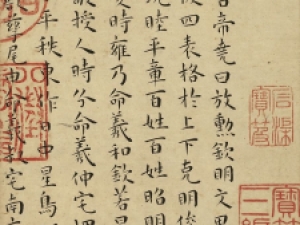 帝堯曰放勳欽明文思
四表格於上下克明俊
睦平章百姓百姓昭明
變時雍乃命羲和欽若昊
敬授人時分命羲仲宅嵎
平秩東作日中星鳥
孳尾申命羲叔宅南